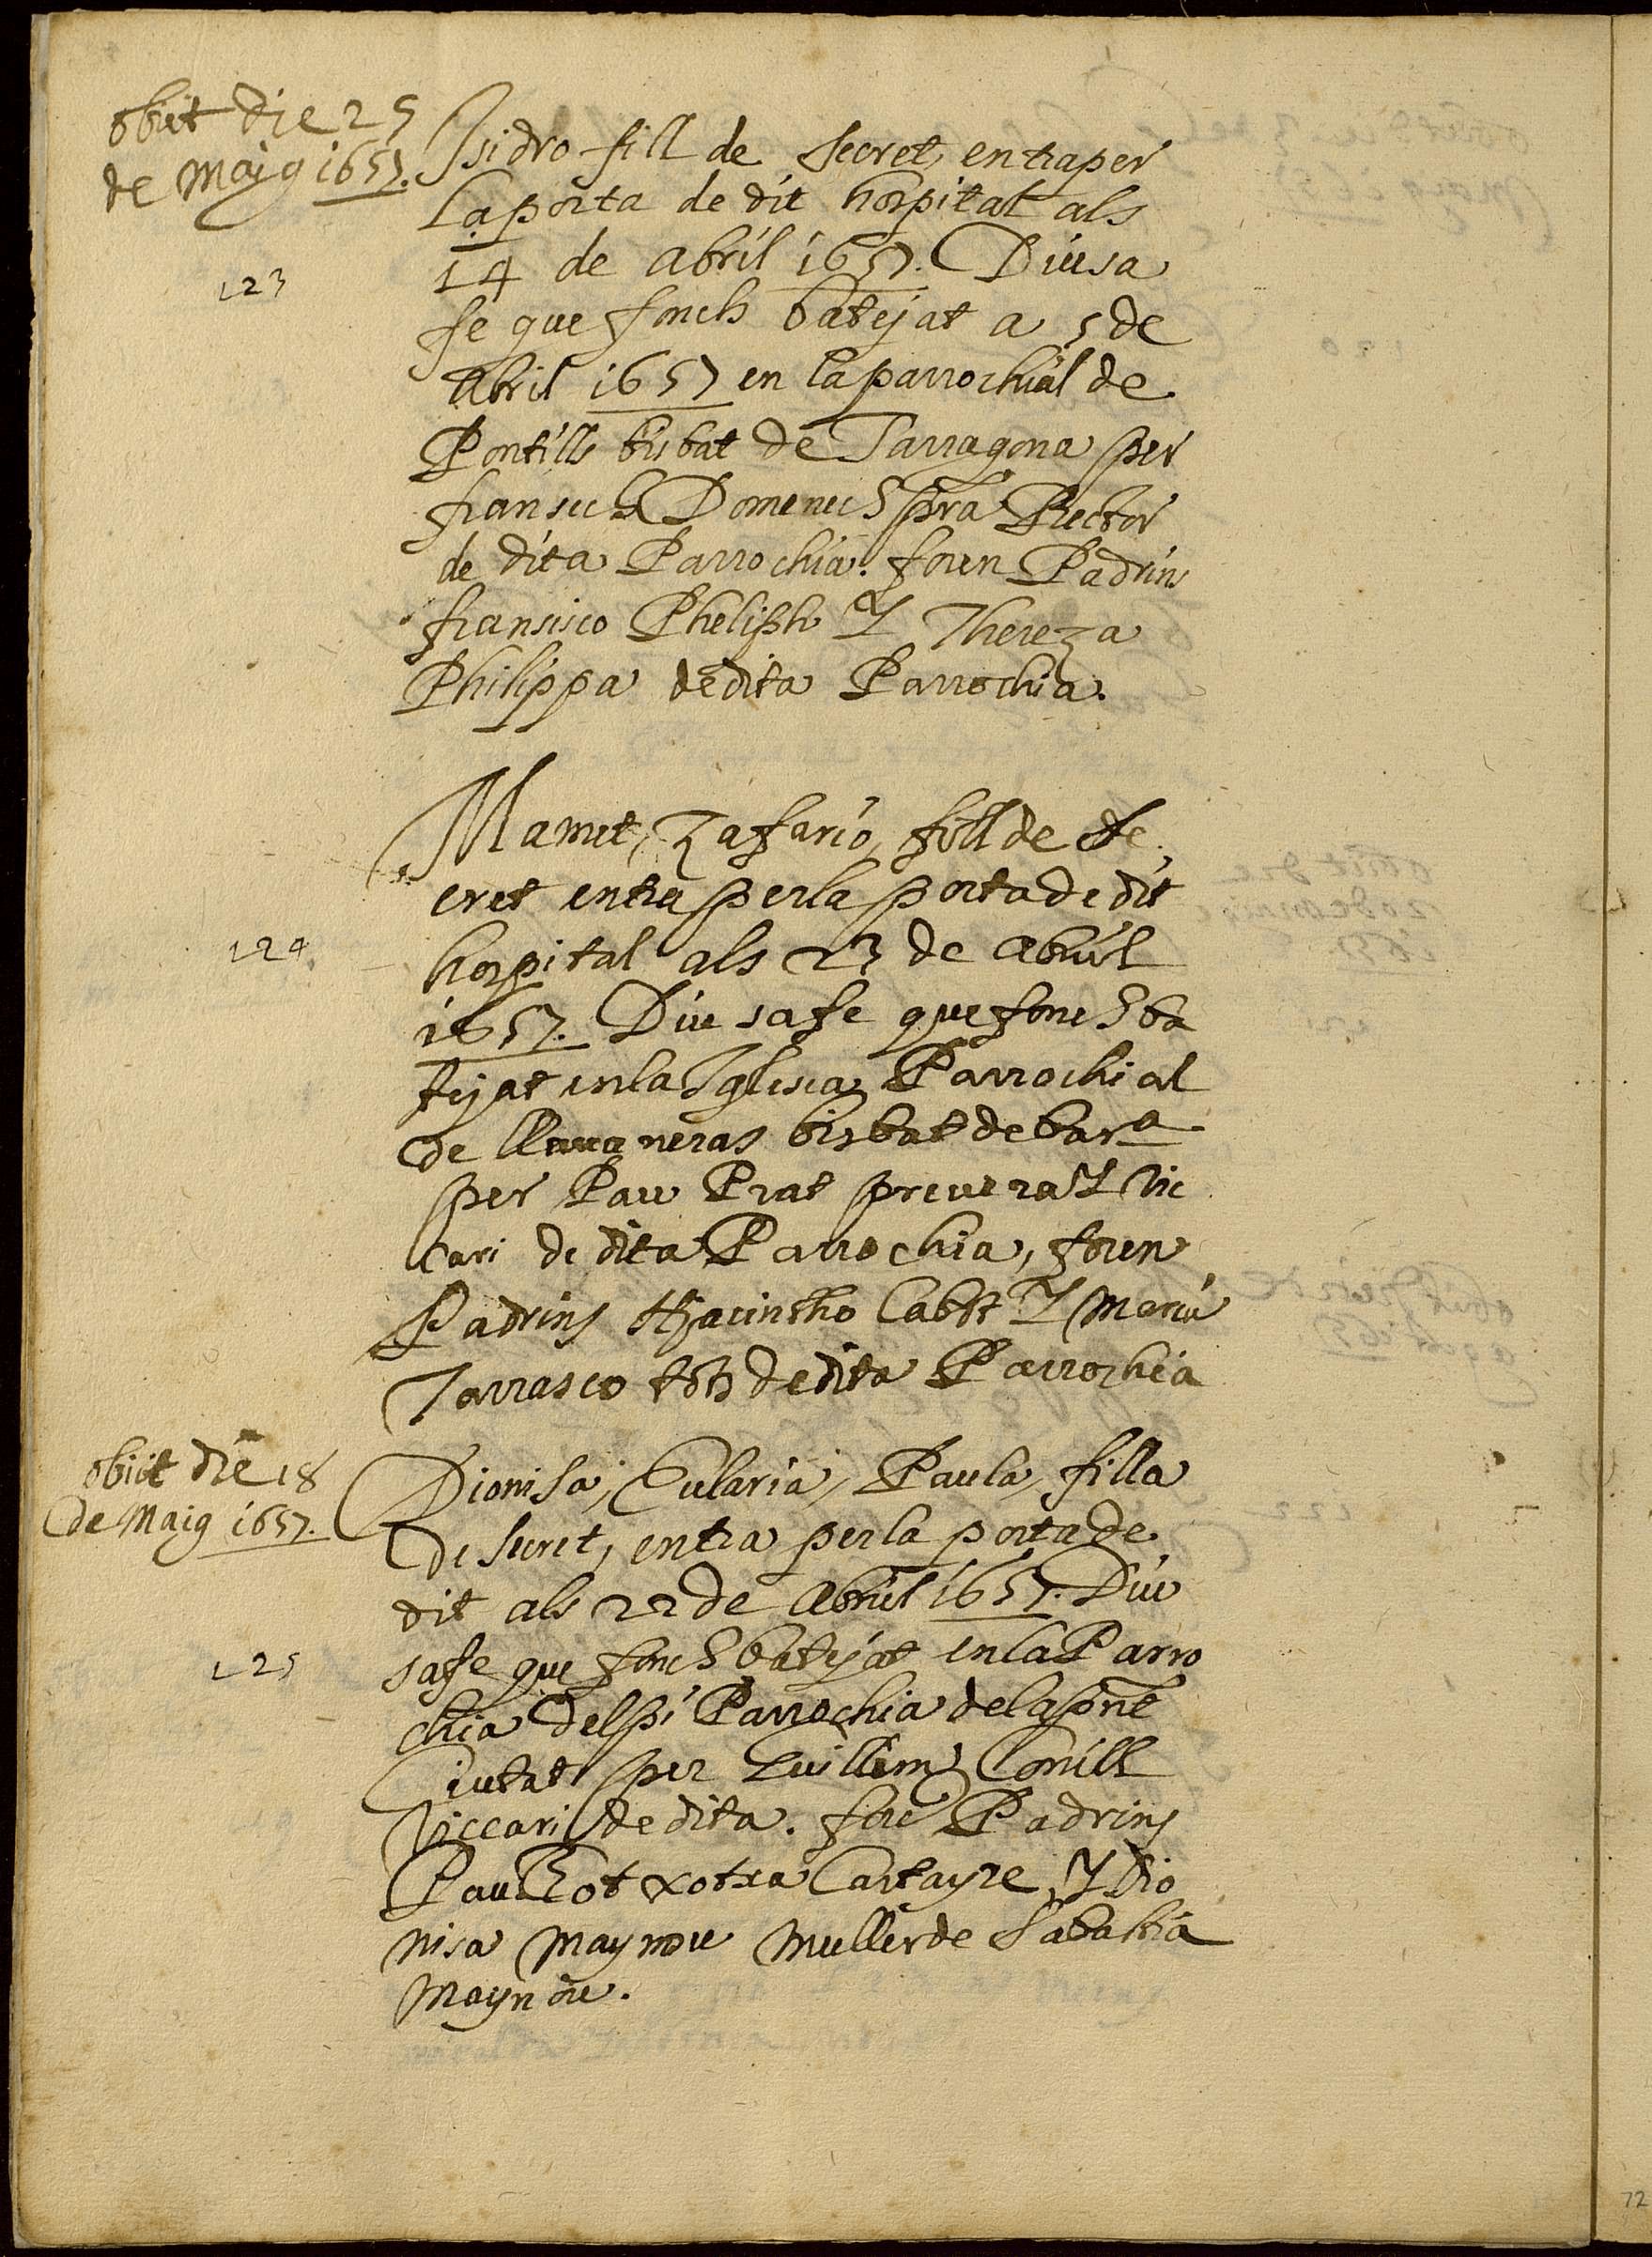 obiit die 25
de Maig 1657.
Isidro fill de secret, entra per
la porta de dit hospital als
14 de Abril 1657. Diu sa
fe que fonch batejat a 5 de
123
Abril 1657 en la parrochial de
Pontills bisbat de Tarragona per
fransech Domenech pra Rector
de dita Parrochia. foren Padrins
fransisco Pheliph Y Thereza
Philippa de dita Parrochia.
Mamet, Zafario, fill de se
cret entra per la porta de dit
124
hospital als 23 de Abril
1657. Diu sa fe que fonch ba
tejat en la Iglesia Parrochial
de llavaneras bisbat de bar.a
per Pau Prat prevere Y Vic
cari de dita Parrochia, foren
Padrins Hjacintho Y Maria
Tarrasco tots de dita Parrochia
obiit die 18
de Maig 1657.
Dionisa, Eularia, Paula, filla
de secret, entra per la porta de
dit als 22 de Abril 1657. Diu
125
sa fe que fonch batejat en la Parro
chia del pi Parrochia de la pnt
Ciutat per Guillem Conill
Viccari de dita. foré Padrins
Pau Cartayre, Y Dio
nisa Maynou Muller de Sabastia
Maynou.
72